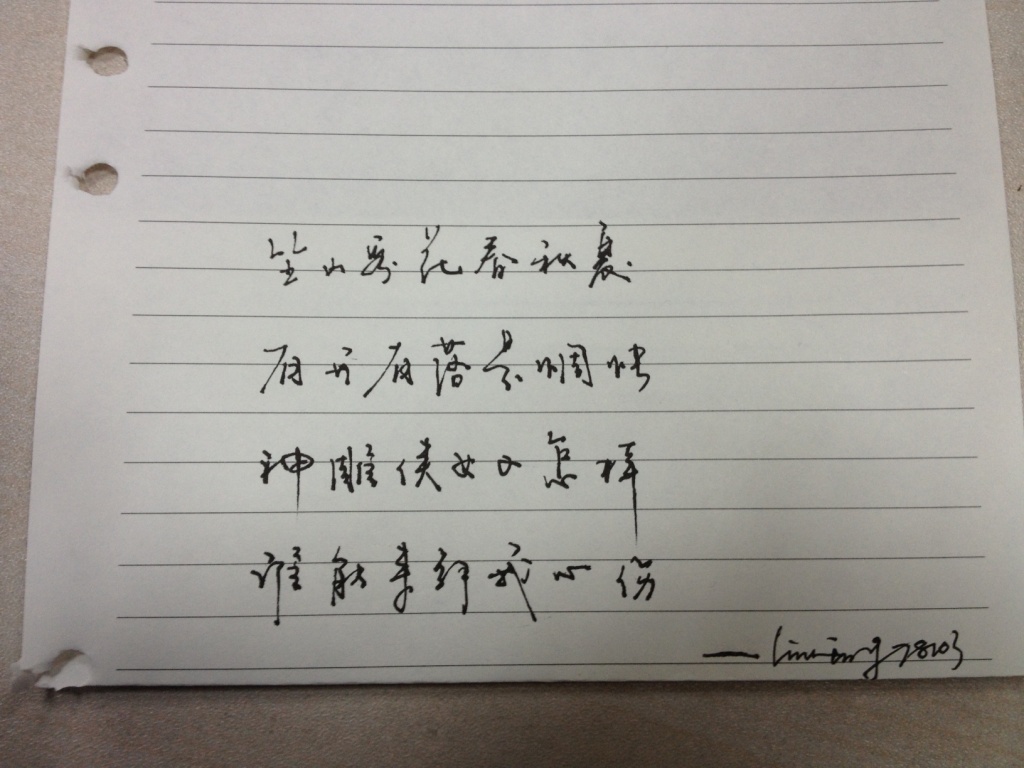 山花春秋夏
有开有落惆怅
神雕侠女又怎样
谁能来解我心伤